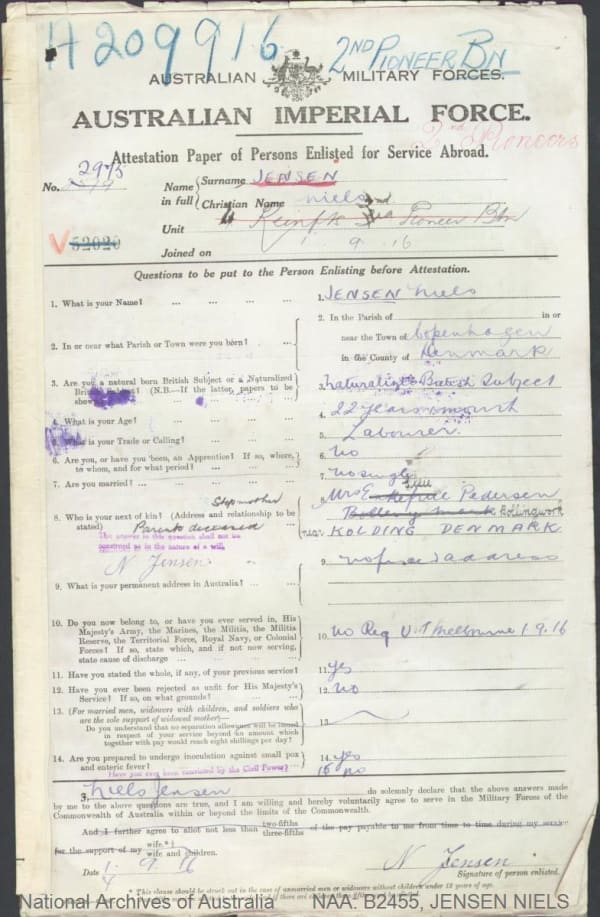 A209916 2ND PIONEER BN
AUSTRALIAN MILITARY FORCES.
AUSTRALIAN IMPERIAL FORCE.
2nd Pioneers
Attestation Paper of Persons Enlisted for Service Abroad.
2975
No.
Name in full { Surname JENSEN
Christian Name Niels
Unit Pioneer Bn
V 52020
1.9.16
Joined on
Questions to be put to the Person Enlisting before Attestation.
1. What is your Name? ... ... ... 1. JENSEN Niels
2. In or near what Parish or Town were you born? ... 2. In the Parish of in or
near the Town of Copenhagen
in the County of Denmark
3. Are you a natural born British Subject or a Naturalized British Subject? (N.B.—If the latter, papers to be shown) 3. Naturalized British Subject
4. What is your Age? ... ... ... 4. 22 years
5. What is your Trade or Calling? ... ... 5. Labourer.
6. Are you, or have you been, an Apprentice? If so, where, to whom, and for what period? ... ... 6. No
7. Are you married? ... ... ... 7. No single
8. Who is your next of kin? (Address and relationship to be stated) ... 8. Mrs Pedersen
Stepmother
Parents deceased
The answer to this question shall not be
construed as in the nature of a will.
N Jensen
near KOLDING DENMARK
9. What is your permanent address in Australia? ... ... 9. no fixed address
10. Do you now belong to, or have you ever served in, His Majesty's Army, the Marines, the Militia, the Militia Reserve, the Territorial Force, Royal Navy, or Colonial Forces? If so, state which, and if not now serving, state cause of discharge ... ... 10. No Rej V.T Melbourne 1.9.16
11. Have you stated the whole, if any, of your previous service? 11. yes
12. Have you ever been rejected as unfit for His Majesty's Service? If so, on what grounds? ... ... 12. No
13. (For married men, widowers with children, and soldiers who are the sole support of widowed mother)—
Do you understand that no separation allowance will be issued in respect of your service beyond an amount which together with pay would reach eight shillings per day? 13.
14. Are you prepared to undergo inoculation against small pox and enteric fever? ... ... 14. yes
Have you ever been convicted by the Civil Power? 15 no
I, Niels Jensen do solemnly declare that the above answers made
by me to the above questions are true, and I am willing and hereby voluntarily agree to serve in the Military Forces of the
Commonwealth of Australia within or beyond the limits of the Commonwealth.
And I further agree to allot not less than two-fifths three-fifths of the pay payable to me from time to time during my service
for the support of my wife* wife and children.
Date 1/9/16 N Jensen
Signature of person enlisted.
* This clause should be struck out in the case of unmarried men or widowers without children under 18 years of age.
National Archives of Australia NAA: B2455, JENSEN NIELS